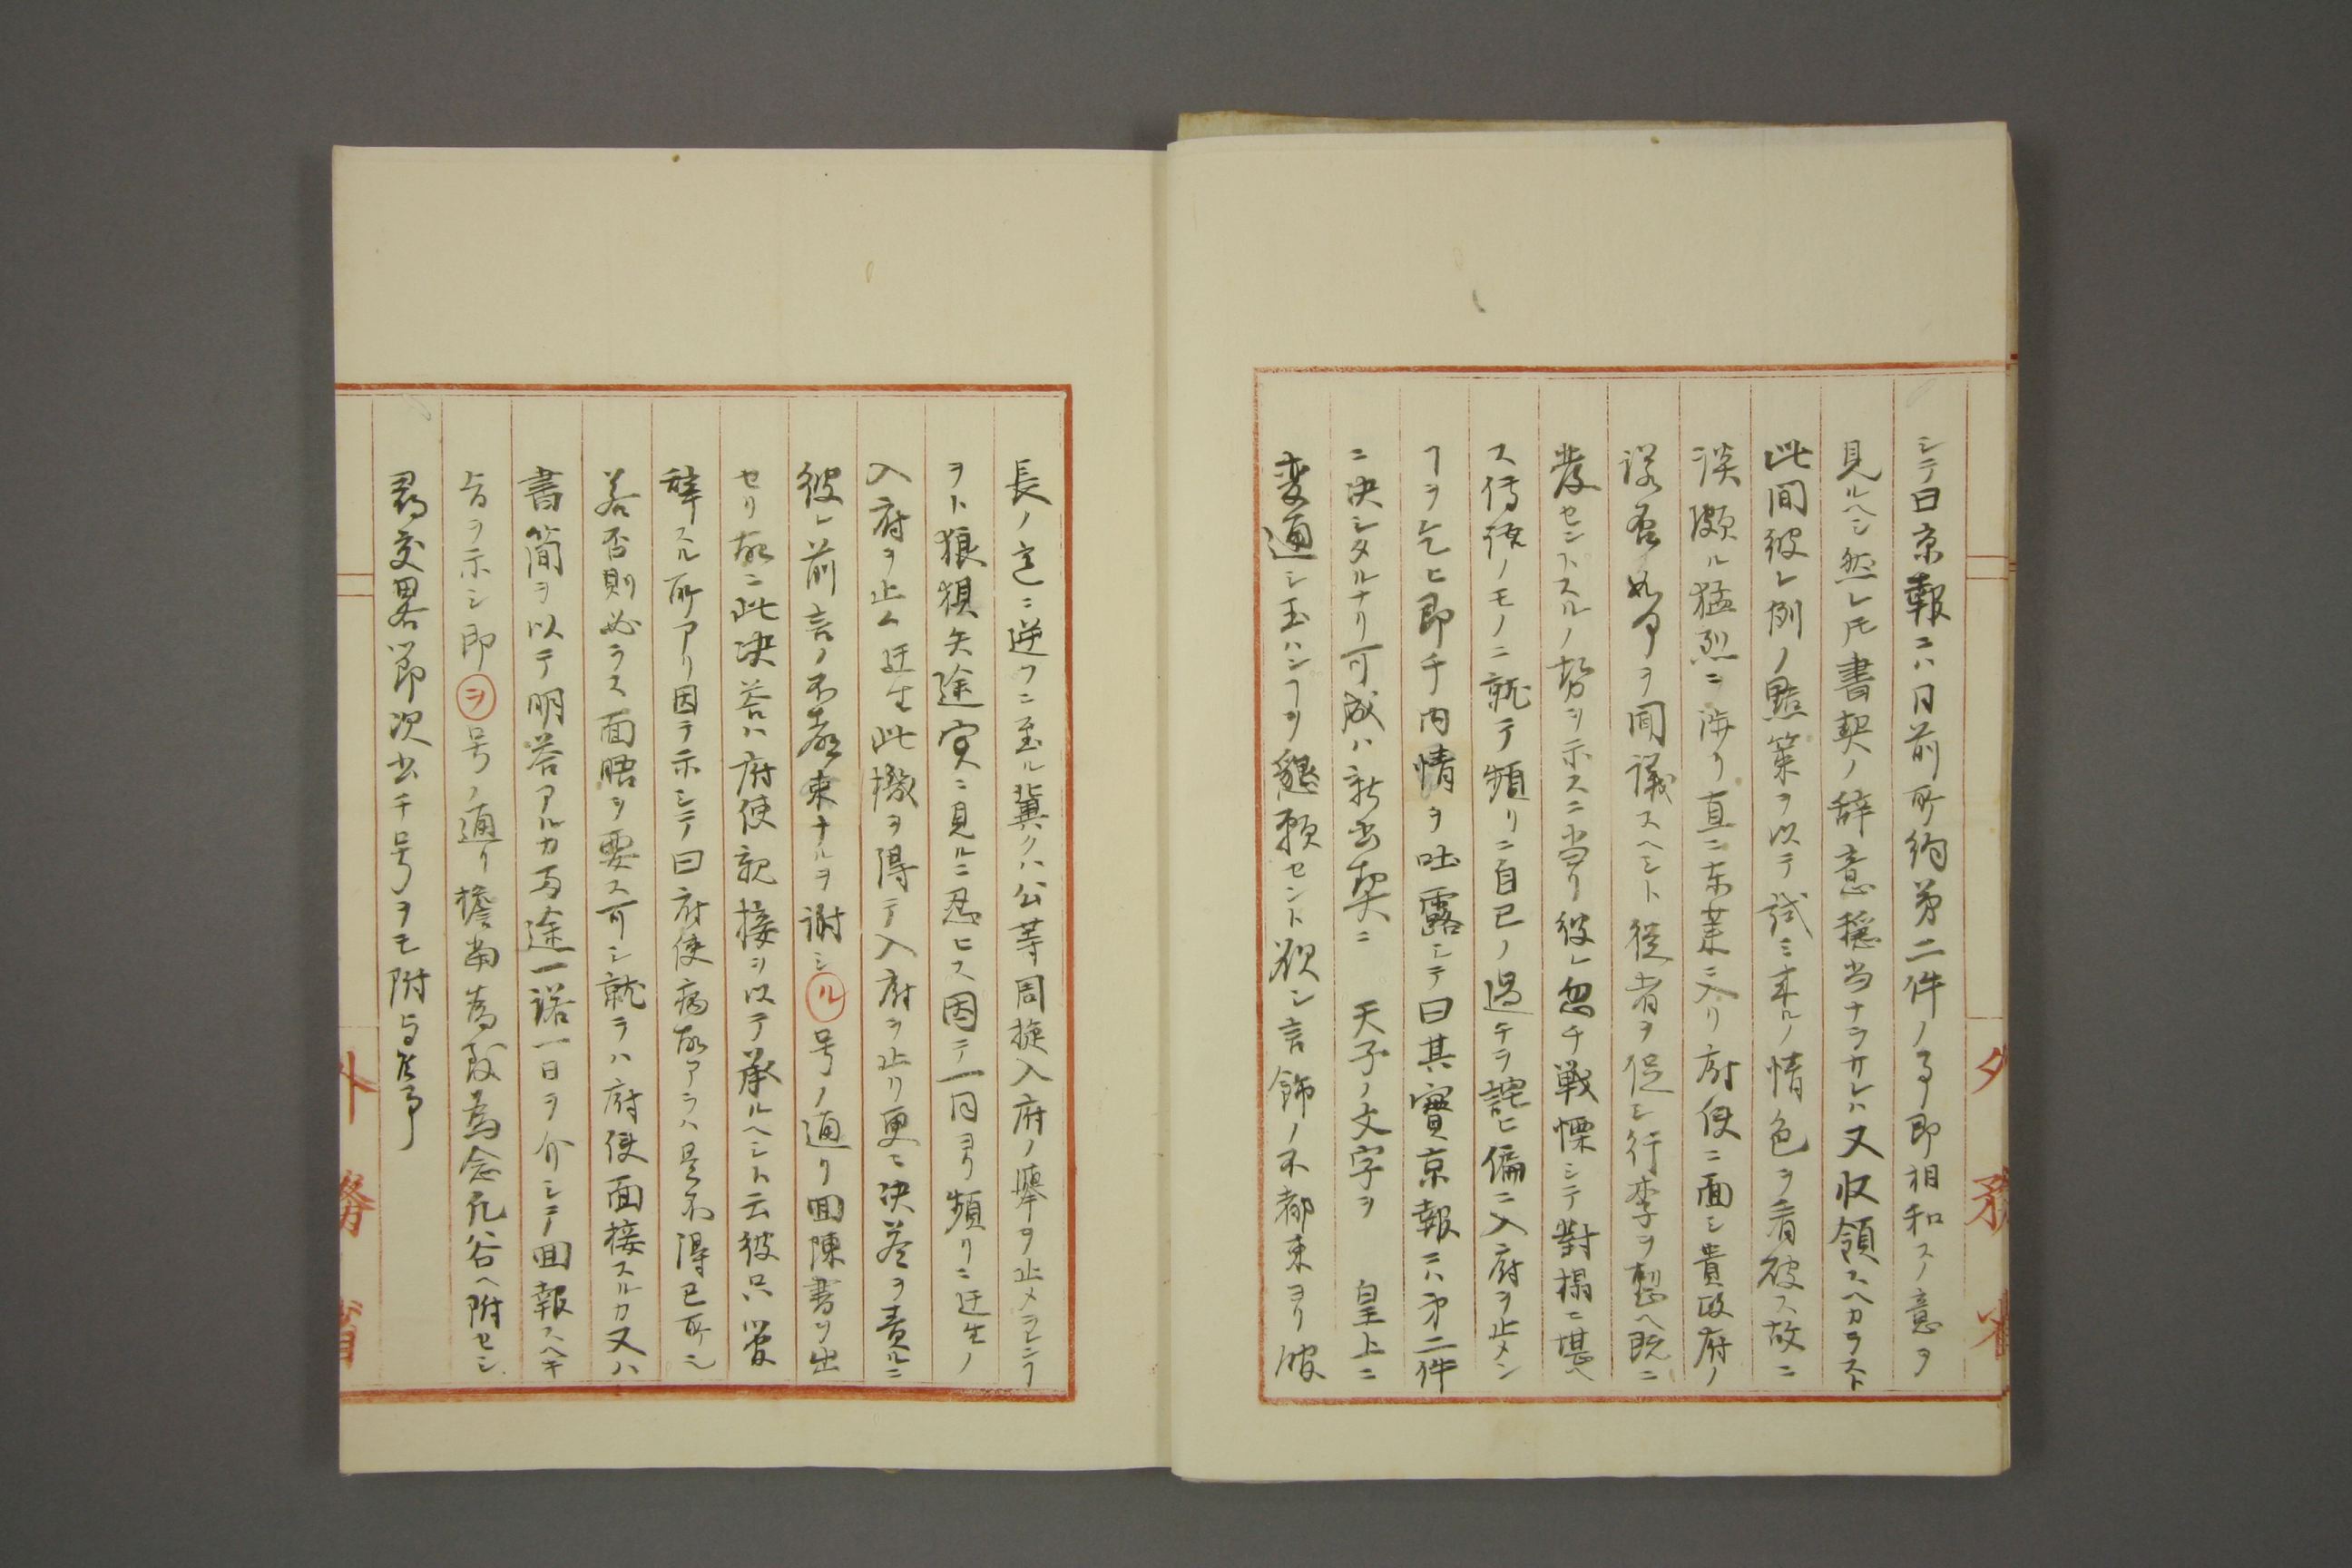 シテ曰京報ニハ日前所約第二件ノ事即相和スノ意ヲ
見ルヘシ然レ𪜈書契ノ辞意穏当ナラサレハ又収領スヘカラスト
此間彼レ例ノ黠策ヲ以テ試ミ来ルノ情色ヲ看破ス故ニ
談頗ル猛烈ニ渉リ直ニ東萊ニ入リ府使ニ面シ貴政府ノ
諾否如何ヲ聞議スヘシト従者ヲ促シ行李ヲ整ヘ既ニ
発セントスルノ勢ヲ示スニ当リ彼レ忽チ戦慄シテ対榻ニ堪ヘ
ス傍ノモノニ就テ頻リニ自己ノ過チヲ詫ヒ偏ニ入府ヲ止メン
ヿヲ乞ヒ即チ内情ヲ吐露シテ曰其實京報ニハ第二件
ニ決シタルナリ可成ハ新書契ニ 天子ノ文字ヲ 皇上ニ
変通シ玉ハンヿヲ懇願セント欲シ言飾ノ不都束ヨリ彼
長ノ意ニ逆フニ至ル冀クハ公等周旋入府ノ擧ヲ止メランヿ
ヲト狼狽失途実ニ見ルニ忍ヒス因テ一同ヨリ頻リニ迂生ノ
入府ヲ止ム迂生此機ヲ得テ入府ヲ止リ更ニ決答ヲ責ルニ
彼レ前言ノ不都束ナルヲ謝シル号ノ通リ回陳書ヲ出
セリ故ニ此決答ハ府使親接ヲ以テ承ルヘシト云彼只管
辞スル所アリ因テ示シテ曰府使病故アラハ是不得已所ニ
若否則必ラス面晤ヲ要ス可シ就テハ府使面接スルカ又ハ
書簡ヲ以テ明答アルカ両途一諾一日ヲ介シテ回報スヘキ
旨ヲ示シ即ヲ号ノ通リ擔当為致為念凡谷ヘ附セシ
尋交畧節次書チ号ヲモ附与候事
外務省
外務省